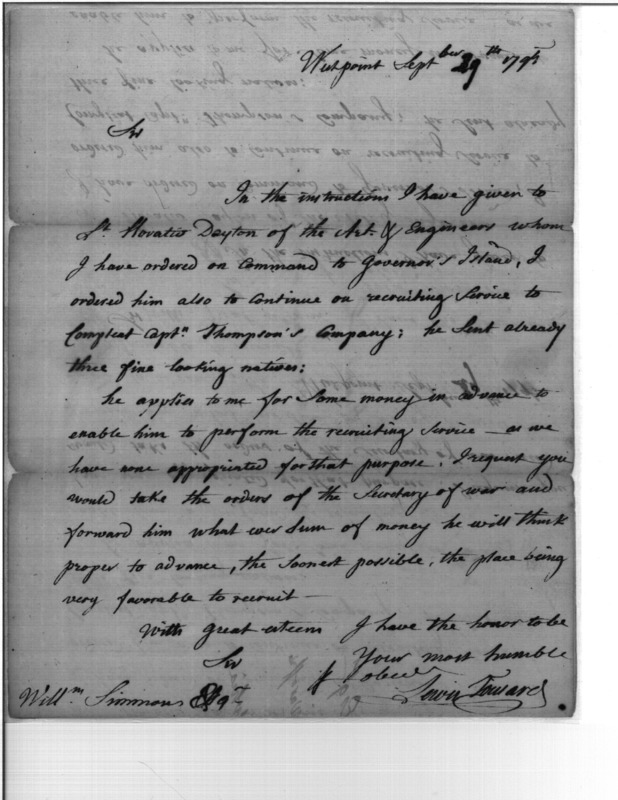 Westpoint Sept ber 29th 1795
Sir
In the instructions I have given to
Lt. Horatio Dayton of the Art. & Engineers whom
I have ordered on Command to Governor's Island, I
ordered him also to Continue on recruiting Service to
Compleat Captn. Thompson's Company; he Sent already
three fine looking natives;
he applies to me for Some money in advance to
enable him to perform the recruiting Service — as we
have none appropriated for that purpose, I request you
would take the orders of the Secretary of war and
forward him what ever Sum of money he will think
proper to advance, the Soonest possible, the place being
very favorable to recruit —
With great esteem I have the honor to be
Sir Your most humble
& obed
Willm. Simmons Lewis Tousard